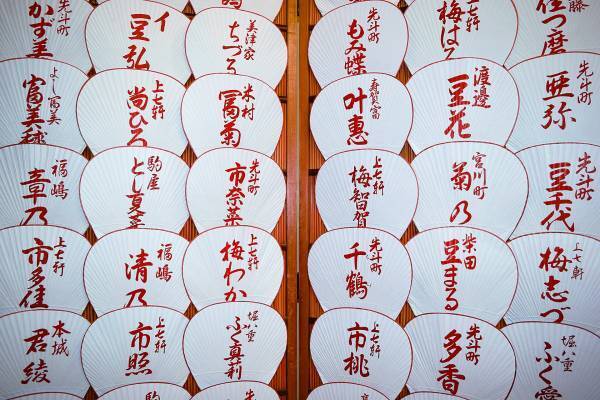 先斗町
かず美
豆弘
美津家
ちづる
先斗町
もみ蝶
上七軒
梅はる
佳つ磨
よし富美
富美毬
上七軒
尚ひろ
米村
冨菊
寿賀富
叶惠
渡邊
豆花
先斗町
亜弥
福嶋
章乃
駒屋
とし夏菜
先斗町
市奈菜
上七軒
梅智賀
宮川町
菊乃
先斗町
豆千代
上七軒
市多佳
福嶋
清乃
上七軒
梅わか
先斗町
千鶴
柴田
豆まる
上七軒
梅志づ
本城
君綾
上七軒
市照
堀八重
ふく真莉
上七軒
市桃
先斗町
多香
堀八重
ふく愛